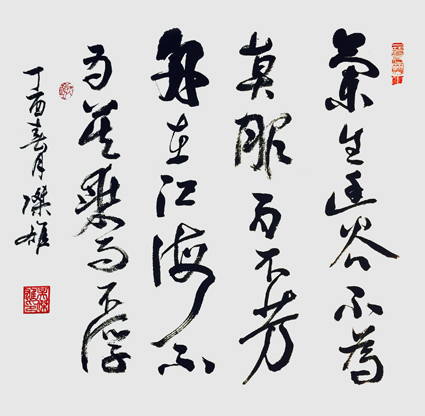 蘭生幽谷不為
莫服而不芳
舟在江海不
为莫乘而不浮
丁酉春月